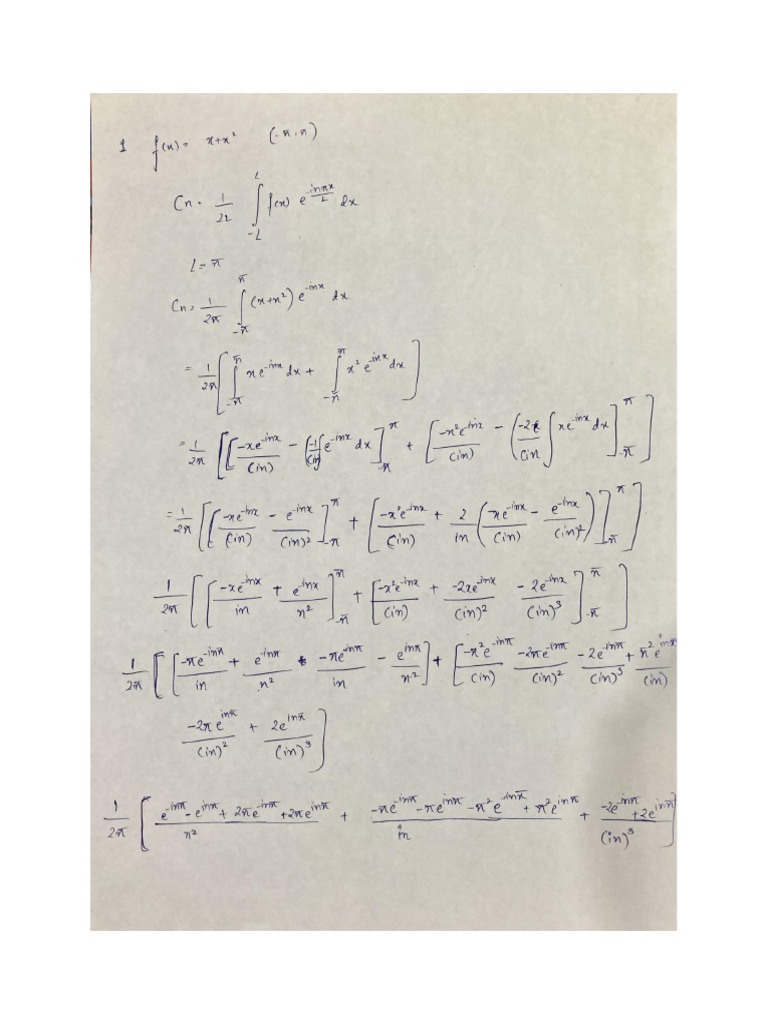 1 f(x) = x+x² (-π, π)
Cn = 1/2L ∫_{-L}^{L} f(x) e^{-inπx/L} dx
L = π
Cn = 1/2π ∫_{-π}^{π} (x+x²) e^{-inx} dx
= 1/2π [ ∫_{-π}^{π} xe^{-inx} dx + ∫_{-π}^{π} x² e^{-inx} dx ]
= 1/2π [ [ -xe^{-inx}/(in) - (-1/(in) ∫ e^{-inx} dx ]_{-π}^{π} + [ -x²e^{-inx}/(in) - ( -2/(in ∫ xe^{-inx} dx ]_{-π}^{π} ]
= 1/2π [ [ -xe^{-inx}/(in) - e^{-inx}/(in)² ]_{-π}^{π} + [ -x²e^{-inx}/(in) + 2/in ( xe^{-inx}/(in) - e^{-inx}/(in)² ) ]_{-π}^{π} ]
1/2π [ [ -xe^{-inx}/in + e^{-inx}/n² ]_{-π}^{π} + [ -x²e^{-inx}/(in) + -2xe^{-inx}/(in)² - 2e^{-inx}/(in)³ ]_{-π}^{π} ]
1/2π [ [ -πe^{-inπ}/in + e^{-inπ}/n² -πe^{inπ}/in - e^{inπ}/n² ] + [ -π²e^{-inπ}/(in) -2πe^{-inπ}/(in)² -2e^{-inπ}/(in)³ + π²e^{inπ}/(in)
-2πe^{inπ}/(in)² + 2e^{inπ}/(in)³ ]
1/2π [ e^{-inπ} - e^{inπ} + 2πe^{-inπ} + 2πe^{inπ}/n² + -πe^{-inπ} -πe^{inπ} -π²e^{-inπ} + π²e^{inπ}/in + -2e^{-inπ} + 2e^{inπ}/(in)³ ]